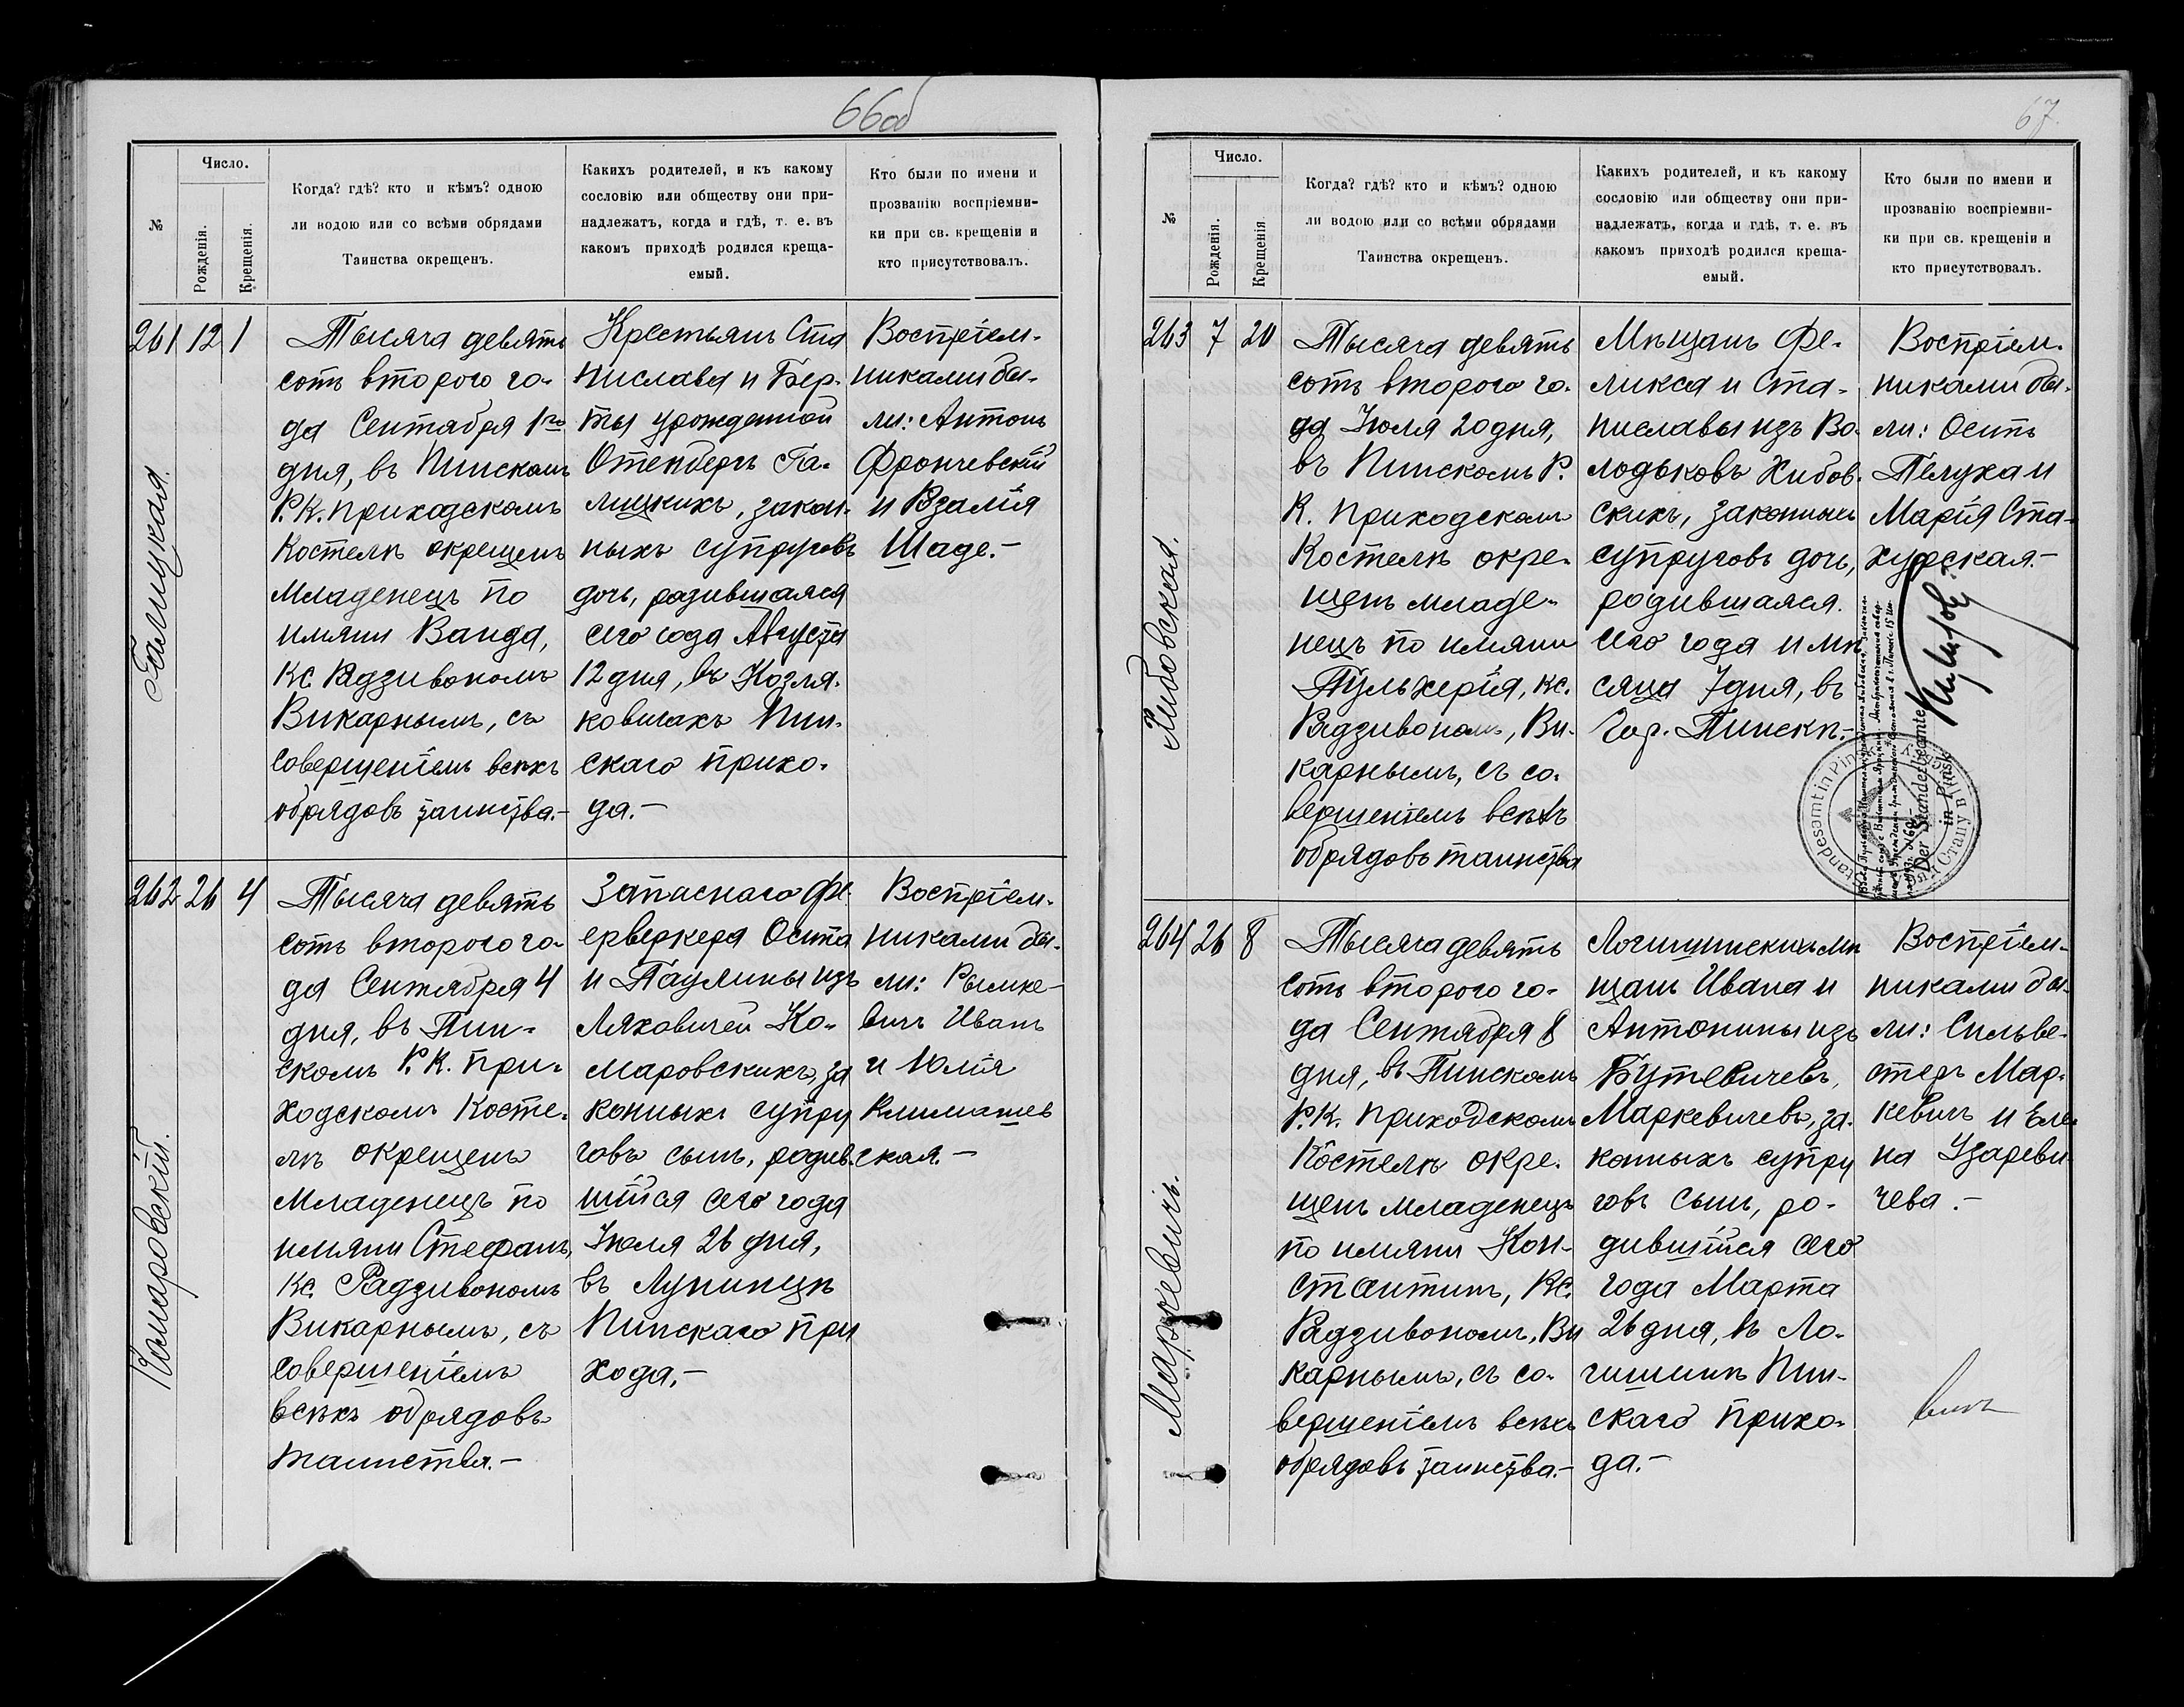 66об
№
Число.
Рожденія.
Крещенія.
Когда? гдѣ? кто и кѣмъ? одною
ли водою или со всѣми обрядами
Таинства окрещенъ.
Какихъ родителей, и къ какому
сословію или обществу они при-
надлежатъ, когда и гдѣ, т. е. въ
какомъ приходѣ родился креща-
емый.
Кто были по имени и
прозванію воспріемни-
ки при св. крещеніи и
кто присутствовалъ.
261 12 1
Галицкая.
Тысяча девять
сотъ второго го-
да Сентября 1го
дня, въ Пинскомъ
Р. К. приходскомъ
Костелѣ окрещенъ
младенецъ по
имяни Ванда,
Кс. Радзивономъ
Викарнымъ, съ
совершеніемъ всѣхъ
обрядовъ таинства.-
Крестьянъ Ста
нислава и Бер-
ты урожденной
Отенбергъ Га-
лицкихъ, закон-
ныхъ супруговъ
дочь, родившаяся
сего года Августа
12 дня, въ Козля-
ковичахъ Пин-
скаго прихо-
да.-
Воспріем-
никами бы-
ли: Антонъ
Фрончевскій
и Розалія
Шаде.-
262 26 4
Комаровскій.
Тысяча девять
сотъ второго го-
да Сентября 4
дня, въ Пин-
скомъ Р. К. при-
ходскомъ Косте-
лѣ окрещенъ
младенецъ по
имяни Стефанъ,
Кс. Радзивономъ
Викарнымъ, съ
совершеніемъ
всѣхъ обрядовъ
таинства.-
Запаснаго фе-
ерверкера Осипа
и Паулины изъ
Ляховичей Ко-
маровскихъ, за
конныхъ супру
говъ сынъ, родив-
шійся сего года
Іюля 26 дня,
въ Лунинцѣ
Пинскаго при
хода.-
Воспріем-
никами бы-
ли: Рымке-
вичъ Иванъ
и Юлія
Климашев
ская.-
67
№
Число.
Рожденія.
Крещенія
Когда? гдѣ? кто и кѣмъ? одною
ли водою или со всѣми обрядами
Таинства окрещенъ.
Какихъ родителей, и къ какому
сословію или обществу они при-
надлежатъ, когда и гдѣ, т. е. въ
какомъ приходѣ родился креща-
емый.
Кто были по имени и
прозванію воспріемни-
ки при св. крещеніи и
кто присутствовалъ.
263 7 20
Хибовская.
Тысяча девять
сотъ второго го-
да Іюля 20 дня,
въ Пинскомъ Р.
К. приходскомъ
Костелѣ окре-
щенъ младе-
нецъ по имяни
Пульхерія, кс.
Радзивономъ, Ви-
карнымъ, съ со-
вершеніемъ всѣхъ
обрядовъ таинства
Мѣщанъ Фе-
ликса и Ста-
ниславы изъ Во-
лодьковъ Хибов-
скихъ, законныхъ
супруговъ дочь,
родившаяся
сего года и мѣ
сяца 7 дня, въ
Гор. Пинскѣ.-
Воспріем-
никами бы-
ли: Осипъ
Пелуха и
Марія Ста-
хурская.-
Der Standesbeamte
in Pinsk
Standesamt in Pinsk
264 26 8
Маркевичъ.
Тысяча девять
сотъ второго го-
да Сентября 8
дня, въ Пинскомъ
Р. К. приходскомъ
Костелѣ окре-
щенъ младенецъ
по имяни Кон-
стантинъ, Кс.
Радзивономъ, Ви
карнымъ, съ со-
вершеніемъ всѣхъ
обрядовъ таинства.-
Логишинскихъ мѣ
щанъ Ивана и
Антонины изъ
Бутевичевъ,
Маркевичевъ, за-
конныхъ супру
говъ сынъ, ро-
дившійся сего
года Марта
26 дня, въ Ло-
гишинѣ Пин-
скаго прихо-
да.-
Воспріем-
никами бы-
ли: Сильве-
стеръ Мар-
кевичъ и Еле-
на Узареви-
чева.-